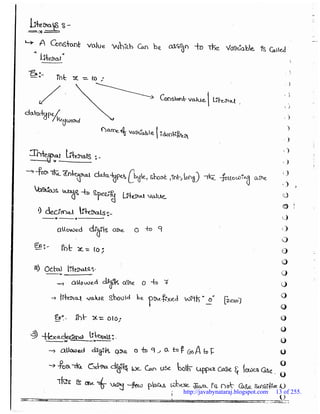 Literals :-
↳ A Constant value which can be assign to the variable is called
"literal"
Ex:- int x = 10 ;
Constant value | literal.
datatype/keyword
name of variable | identifier
Integral literals :-
→ for the Integral data types (byte, short, int, long) the following are
various ways to specify literal value
i) decimal literals:-
allowed digits are 0 to 9
Ex:- int x = 10;
ii) Octal literals:-
→ allowed digits are 0 to 7
→ literal value should be prefixed with "0" [zero]
Ex:- int x = 010;
3) Hexadecimal literals:-
→ allowed digits are 0 to 9, a to f (or) A to F
→ for the Extra digits we can use both upper case & lower case.
This is one of very few places where Java is not case sensitive
http://javabynataraj.blogspot.com 13 of 255.